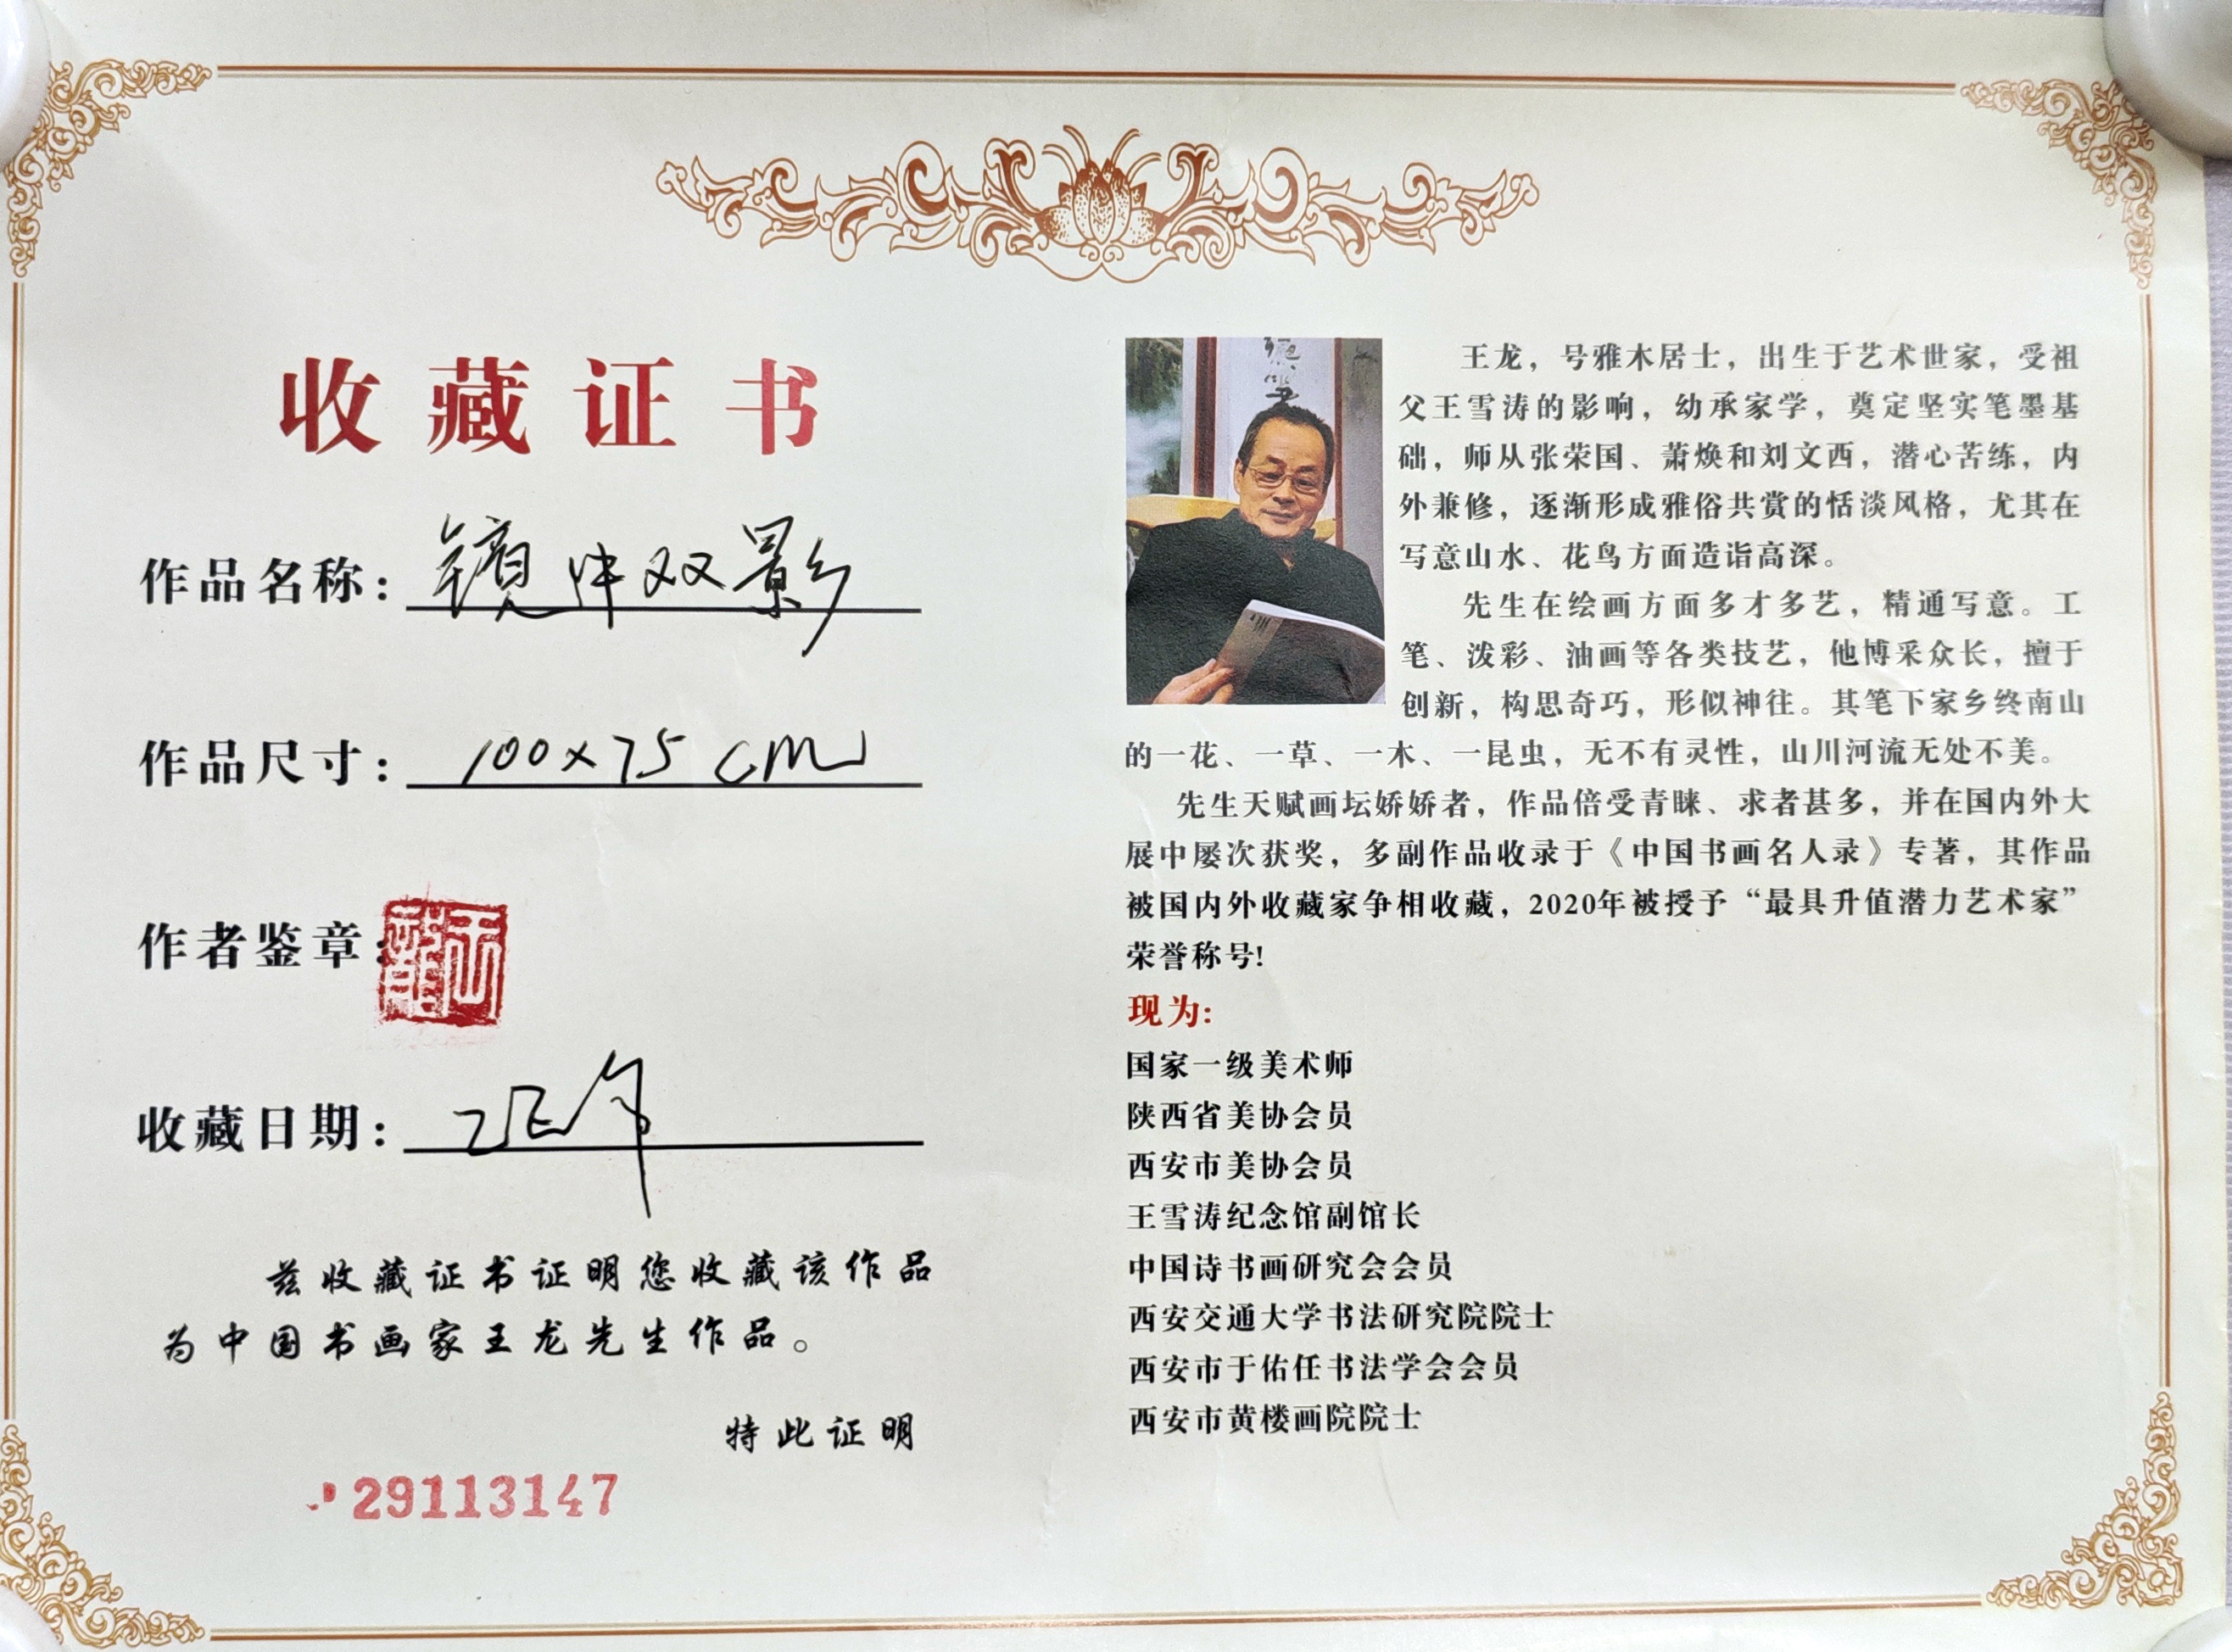 收藏证书
作品名称：镜中双影
作品尺寸：100×75 cm
作者鉴章：
王龍
收藏日期：
兹收藏证书证明您收藏该作品
为中国书画家王龙先生作品。
特此证明
29113147
王龙，号雅木居士，出生于艺术世家，受祖
父王雪涛的影响，幼承家学，奠定坚实笔墨基
础，师从张荣国、萧焕和刘文西，潜心苦练，内
外兼修，逐渐形成雅俗共赏的恬淡风格，尤其在
写意山水、花鸟方面造诣高深。
先生在绘画方面多才多艺，精通写意。工
笔、泼彩、油画等各类技艺，他博采众长，擅于
创新，构思奇巧，形似神往。其笔下家乡终南山
的一花、一草、一木、一昆虫，无不有灵性，山川河流无处不美。
先生天赋画坛娇娇者，作品倍受青睐、求者甚多，并在国内外大
展中屡次获奖，多副作品收录于《中国书画名人录》专著，其作品
被国内外收藏家争相收藏，2020年被授予“最具升值潜力艺术家”
荣誉称号!
现为:
国家一级美术师
陕西省美协会员
西安市美协会员
王雪涛纪念馆副馆长
中国诗书画研究会会员
西安交通大学书法研究院院士
西安市于佑任书法学会会员
西安市黄楼画院院士